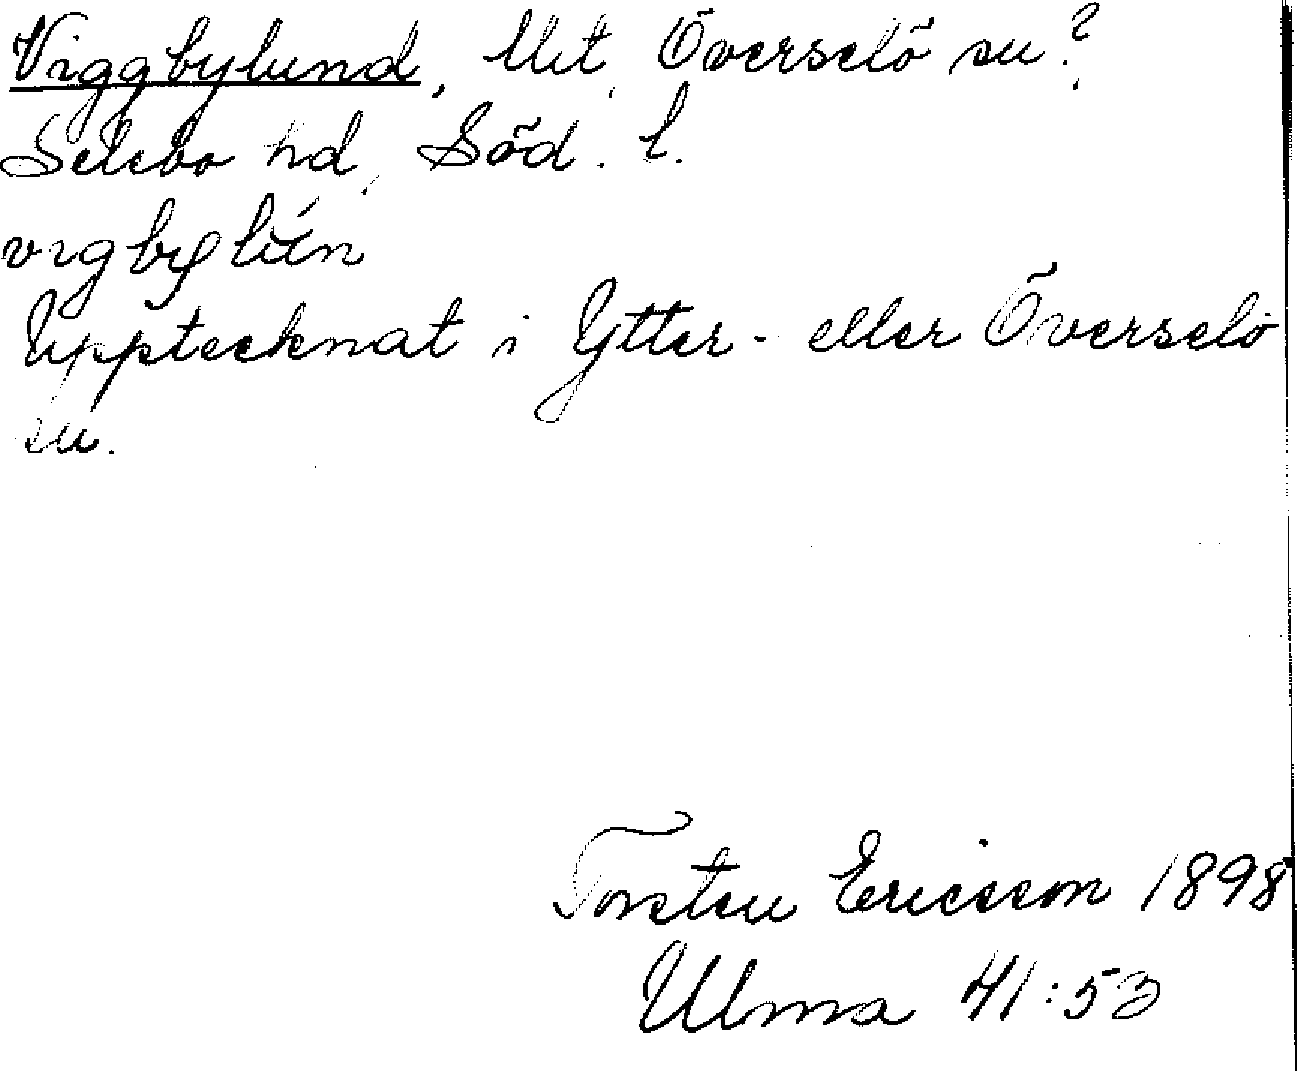 Viggbylund, Utt, Överselö sn?,
Selebo hd, Söd. l.
vigbylún
Upptecknat i Ytter- eller Överselö
sn.
Torsten Ericsson 1898
Ulma 41:53